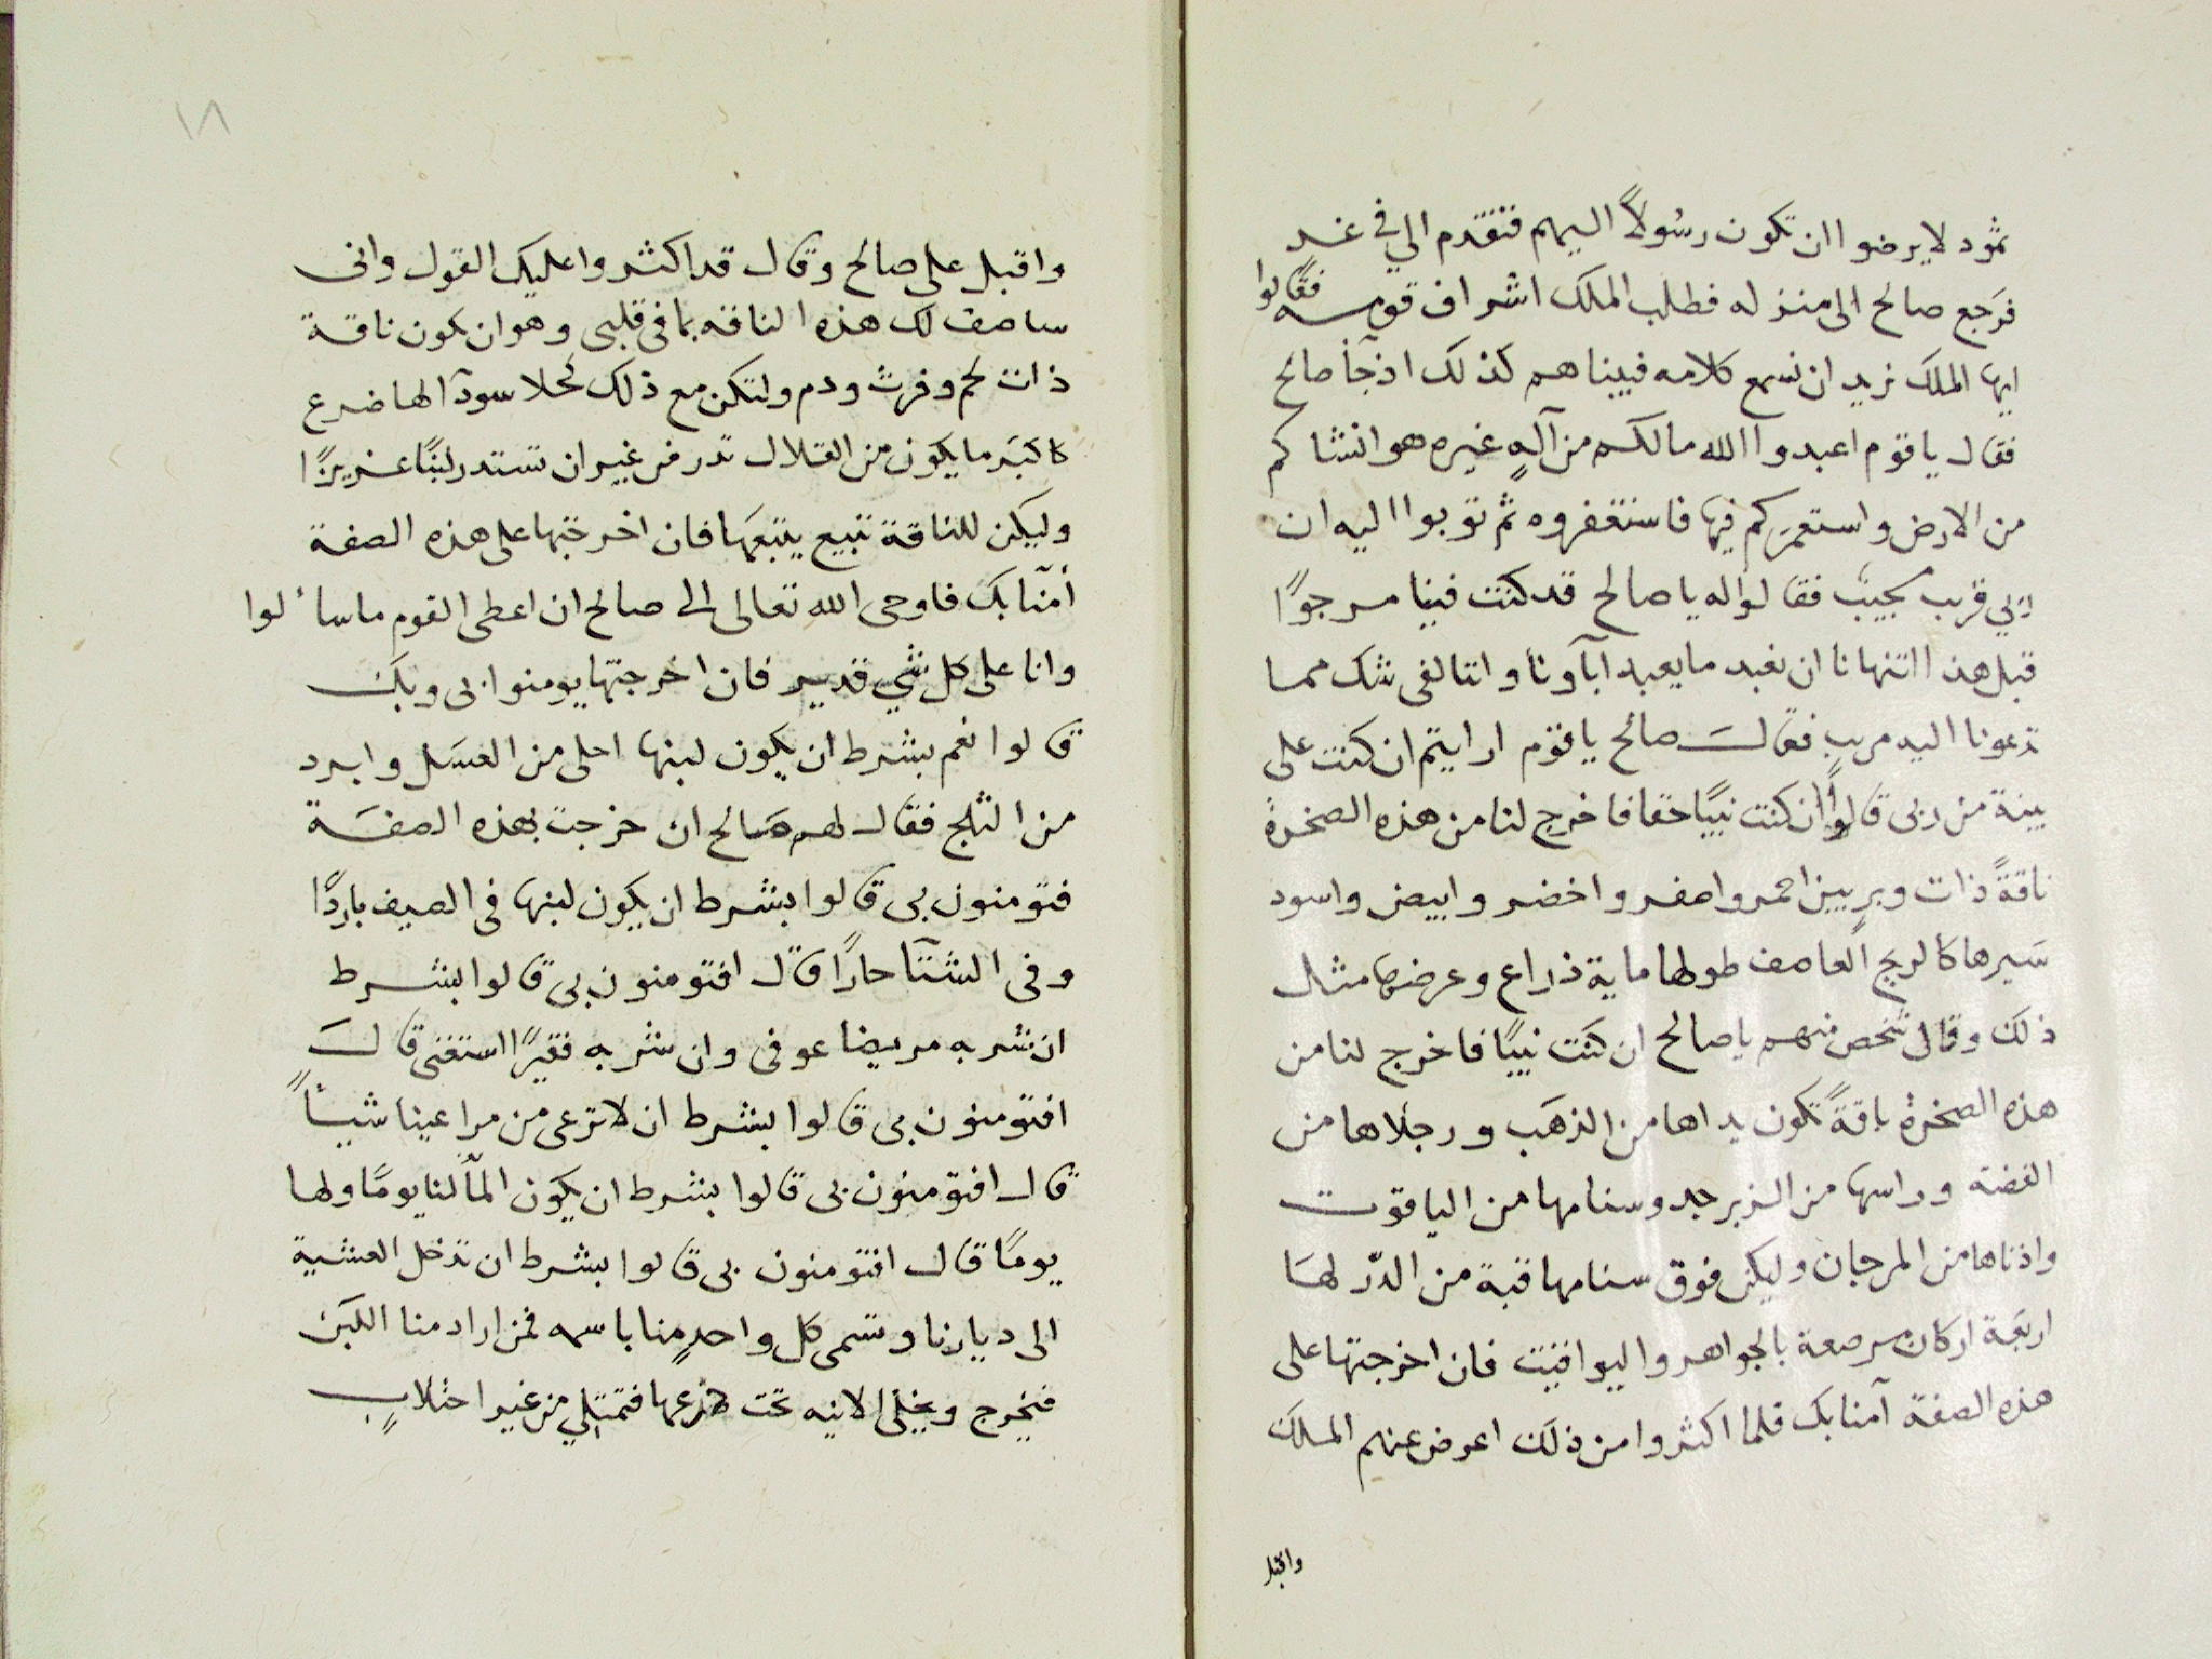 ثمود لا يرضوا ان تكون رسُولاً اليهم فتقدم الي في غد
فرَجع صالح الى منزله فطلب الملك اشراف قومه فقالوا
ايها الملكَ نريد ان نسمع كلامه فبيناهم كذلك اذ جآ صالح
فقال يا قوم اعبدوآ الله مالكم من آلهٍ غيره هو انشاكم
من الارض واستعمَركم فيها فاستغفروه ثم توبوا اليه ان
ربي قريب مجيبٌ فقالوا له يا صالح قد كنت فينا مرجوًا
قبل هذا اتنهانا ان نعبد ما يعبد اباَونا واننا لفي شك مما
تدعونا اليه مريب فقالَ صالح يا قوم ارايتم ان كنت على
بينة من ربى قالوا ان كنت نبيًا حقا فاخرج لنا من هذه الصخرة
ناقةً ذات وبرٍ بين احمر واصفر واخضر وابيض واسود
سَيرها كالريح العاصف طولها ماية ذراع وعرضها مثل
ذلكَ وقال شخص منهم يا صالح ان كنَت نبيًا فاخرج لنا من
هذه الصخرة ناقةً تكون يداها من الذهَب ورجلاها من
الفضة وراسها من الزبرجد وسنامها من الياقوت
واذناها من المرجان وليكن فوق سنامها قبة من الدّر لهَا
اربعَة اركان مرصعة بالجواهر واليواقيت فان اخرجتها على
هذه الصفة آمنا بك فلما اكثروا من ذلكَ اعرض عنهم الملكَ
واقبل
١٨
واقبل على صالح وقال قد اكثروا عليكَ القول وانى
ساصف لك هذه الناقه بما فى قلبى وهو ان تكون ناقة
ذات لحم وفرث ودم ولتكن مع ذلك كحلا سودآ لها ضرع
كاكبَر ما يكون من القلال تدر من غير ان تستدر لبنًا غزيرًا
وليكن للناقة تبيع يتبعَها فان اخرجتها على هذه الصفة
أمنّا بكَ فاوحى الله تعالى الى صالح ان اعطى القوم ما سألوا
وانا على كل شي قدير فان اخرجتها يومنوا بى وبكَ
قالوا نعم بشرط ان يكون لبنها احلى من العسَل وابرد
من الثلج فقال لهم صَالح ان خرجت بهذه الصفَة
فتومنون بى قالوا بشرط ان يكون لبنها فى الصيف باردًا
وفى الشتآ حارًا قال افتومنون بى قالوا بشرط
ان شربه مريضا عوفى وان شربه فقيرًا استغنى قالَ
افتومنون بى قالوا بشرط ان لا ترعى من مراعينا شيأً
قال افتومنون بى قالوا بشرط ان يكون المآ لنا يومًا ولها
يومًا قال افتومنون بى قالوا بشرط ان تدخل العشية
الى ديارنا وتسمى كل واحدٍ منا باسمه فمن اراد منا اللبَن
فيخرج ويخلى الانيه تحت ضرعها فتمتلي من غير احتلابٍ